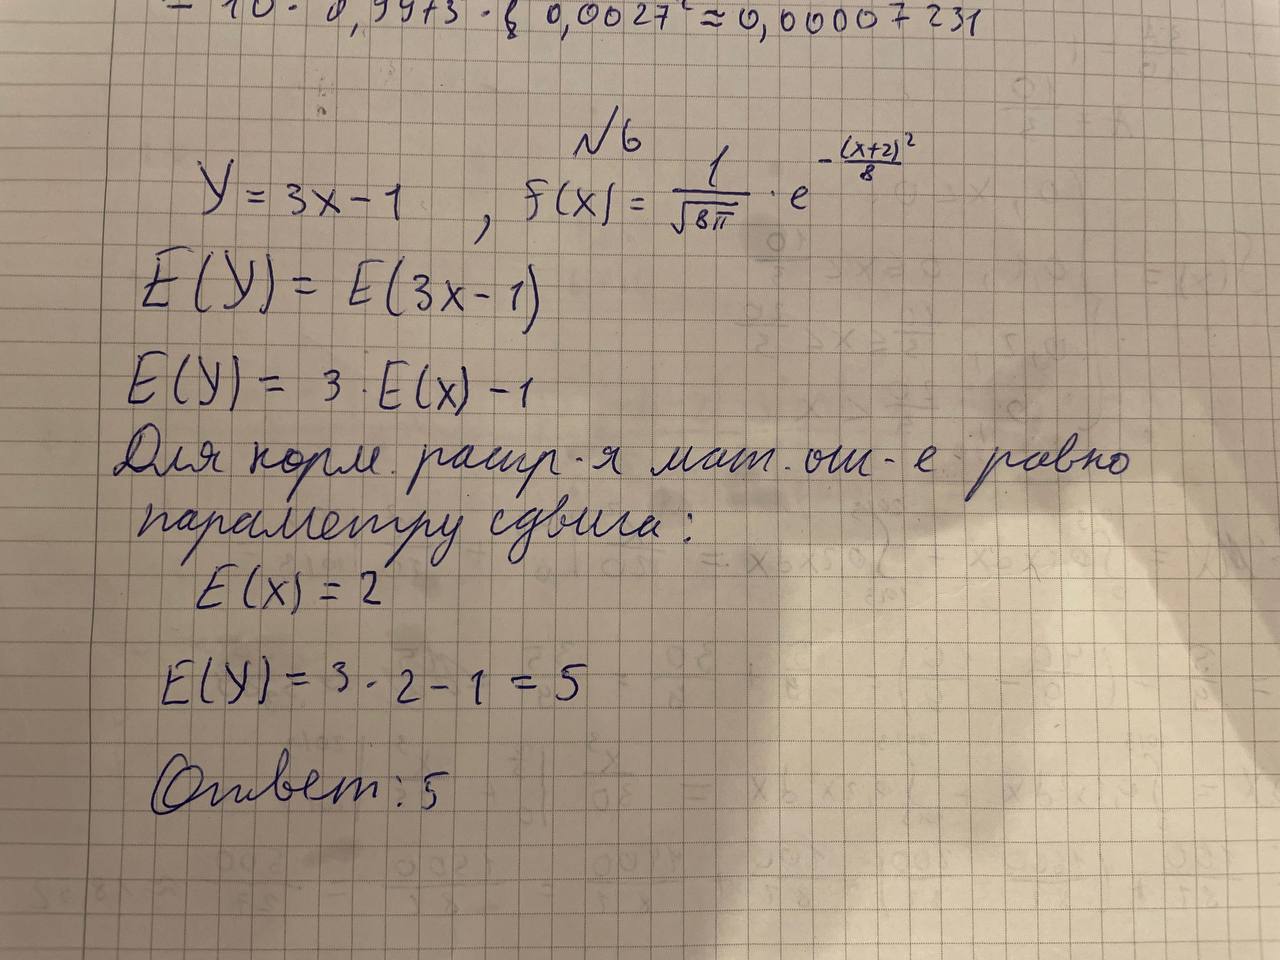 = 10 · 0,9973 · 0,0027² ≈ 0,00007231
№6
Y = 3x - 1 , f(x) = 1/√8π · e^-(x+2)²/8
E(Y) = E(3x - 1)
E(Y) = 3 · E(x) - 1
Для норм. распр-я мат. ож-е равно
параметру сдвига:
E(x) = 2
E(Y) = 3 · 2 - 1 = 5
Ответ: 5